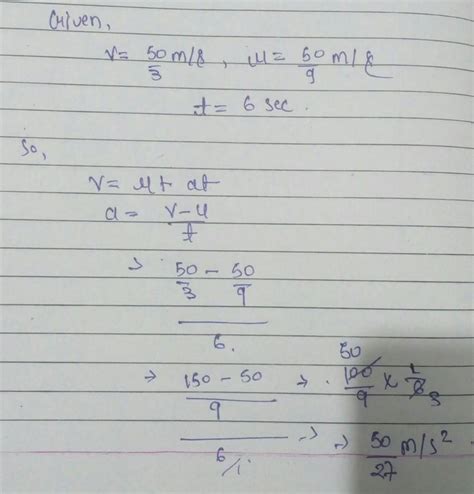 Given,
v = 50/3 m/s, u = 50/9 m/s
t = 6 sec.
So,
v = u + at
a = v-u/t
→ 50/3 - 50/9
6.
→ 150 - 50/9 → 50 100/9 x 1/6 3
6/1. → → 50/27 m/s²